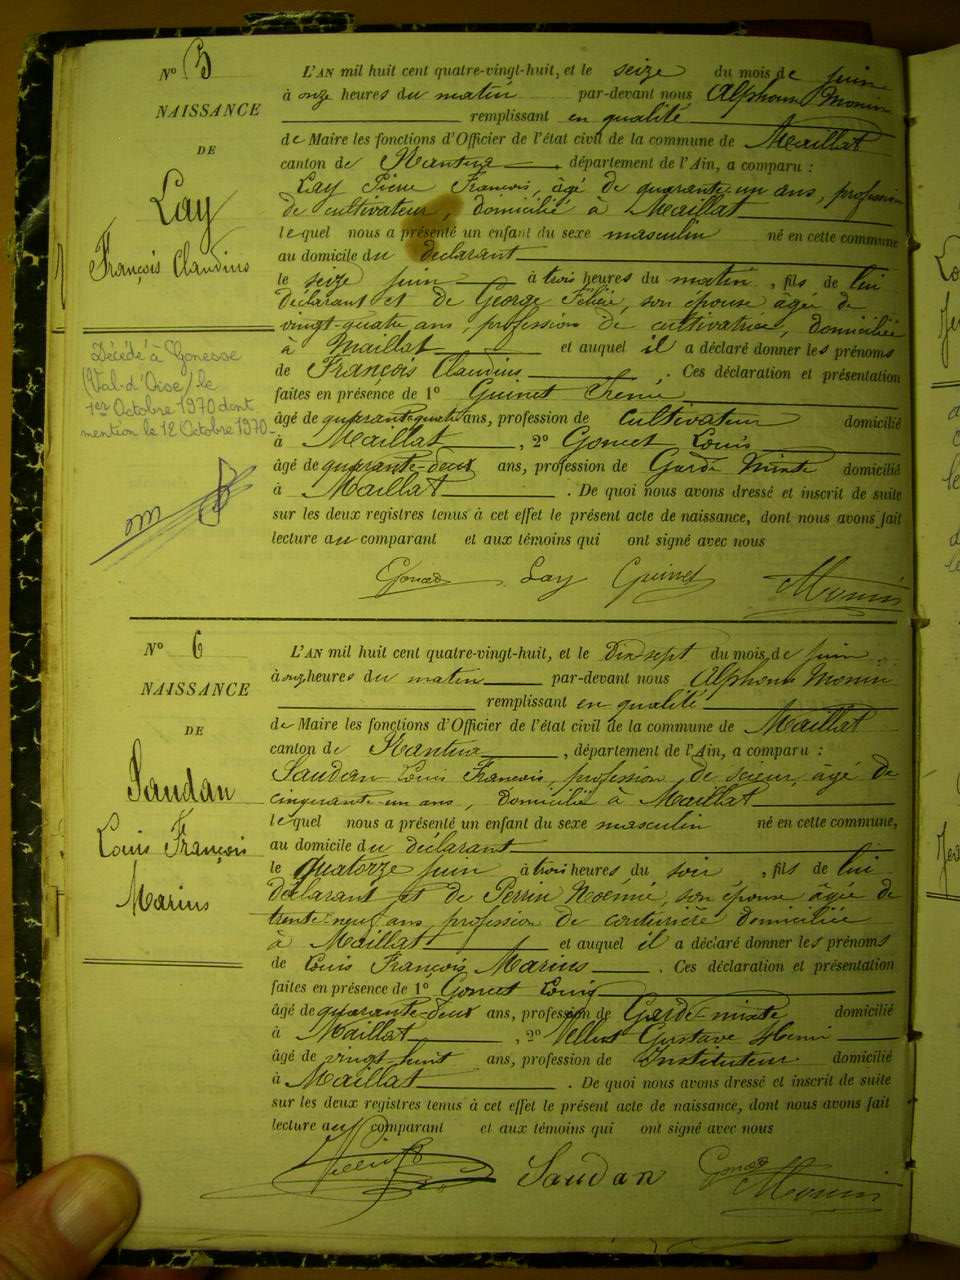 N° 5
NAISSANCE
DE
Lay
François Claudius
Décédé à Gonesse
(Val-d'Oise) le
1er Octobre 1970 dont
mention le 12 Octobre 1970.
L'AN mil huit cent quatre-vingt-huit, et le seize du mois de juin
à onze heures du matin par-devant nous Alphonse Monin
remplissant en qualité
de Maire les fonctions d'Officier de l'état civil de la commune de Maillat
canton de Nantua, département de l'Ain, a comparu :
Lay Pierre François, âgé de quarante un ans, profession
de cultivateur, domicilié à Maillat
lequel nous a présenté un enfant du sexe masculin né en cette commune
au domicile du déclarant
le seize juin à trois heures du matin, fils de lui
déclarant et de George Félicie, son épouse âgée de
vingt-quatre ans, profession de cultivatrice, domiciliée
à Maillat et auquel il a déclaré donner les prénoms
de François Claudius. Ces déclaration et présentation
faites en présence de 1° Guinet
âgé de quarante-quatre ans, profession de cultivateur domicilié
à Maillat, 2° Goncet Louis
âgé de quarante-deux ans, profession de Garde mixte domicilié
à Maillat. De quoi nous avons dressé et inscrit de suite
sur les deux registres tenus à cet effet le présent acte de naissance, dont nous avons fait
lecture au comparant et aux témoins qui ont signé avec nous
Lay Guinet Monin
N° 6
NAISSANCE
DE
Saudan
Louis François
Marius
L'AN mil huit cent quatre-vingt-huit, et le Dix-sept du mois de juin
à onze heures du matin par-devant nous Alphonse Monin
remplissant en qualité
de Maire les fonctions d'Officier de l'état civil de la commune de Maillat
canton de Nantua, département de l'Ain, a comparu :
Saudan Louis François, profession de scieur, âgé de
cinquante-un ans, domicilié à Maillat
lequel nous a présenté un enfant du sexe masculin né en cette commune,
au domicile du déclarant
le quatorze juin à trois heures du soir, fils de lui
déclarant et de Perrin Noémie, son épouse âgée de
trente-neuf ans profession de couturière domiciliée
à Maillat et auquel il a déclaré donner les prénoms
de Louis François Marius. Ces déclaration et présentation
faites en présence de 1° Goncet Louis
âgé de quarante-deux ans, profession de Garde-mixte domicilié
à Maillat, 2° Gustave Henri
âgé de vingt-huit ans, profession de Instituteur domicilié
à Maillat. De quoi nous avons dressé et inscrit de suite
sur les deux registres tenus à cet effet le présent acte de naissance, dont nous avons fait
lecture au comparant et aux témoins qui ont signé avec nous
Saudan Monin